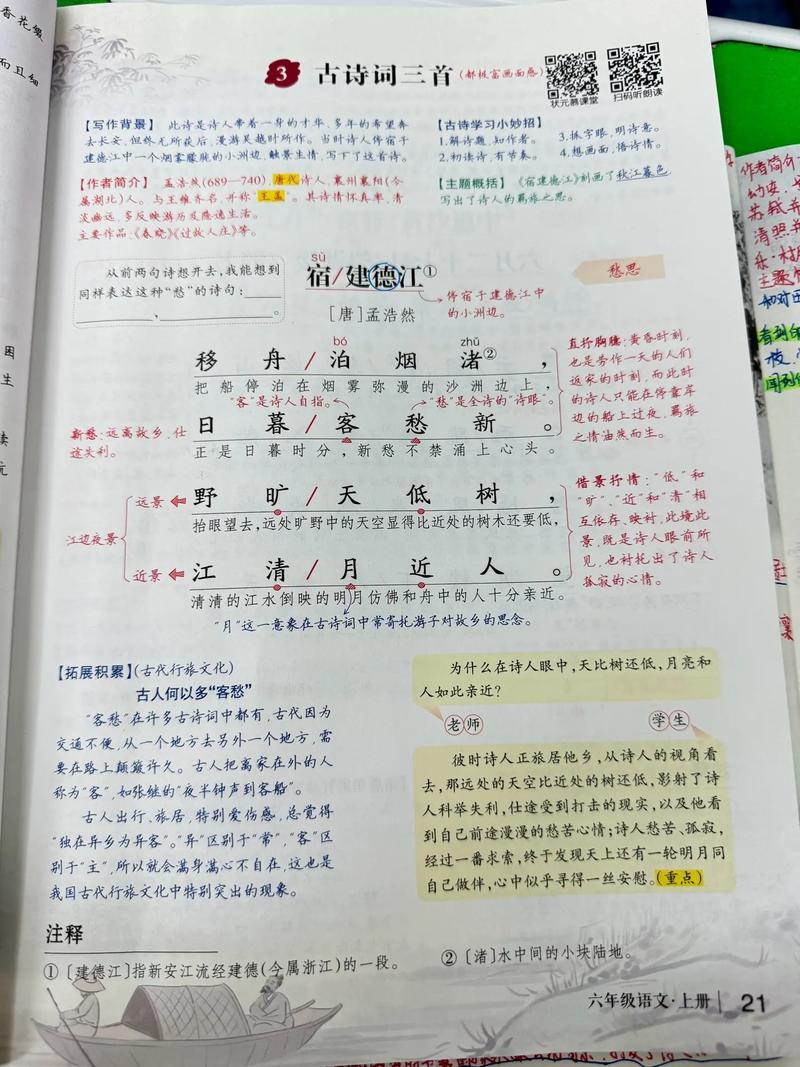 香花缀
而且细
3 古诗词三首(都极富画面感)
状元慕课堂 扫码听朗读
【写作背景】 此诗是诗人带着一身的才华、多年的希望奔
去长安,但终无所获后,漫游吴越时所作。当时诗人停宿于
建德江中一个烟雾朦胧的小洲边,触景生情,写下了这首诗。
【古诗学习小妙招】
1.解诗题,知作者。 3.抓字眼,明诗意。
2.初读诗,有节奏。 4.想画面,悟诗情。
【作者简介】 孟浩然(689—740),唐代诗人,襄州襄阳(今
属湖北)人。与王维齐名,并称“王孟”。其诗情怀真率,清
淡幽远,多反映游历及隐逸生活。
主要作品:《春晓》《过故人庄》等。
【主题概括】 《宿建德江》刻画了秋江暮色,
写出了诗人的羁旅之思。
从前两句诗想开去,我能想到
同样表达这种“愁”的诗句:
,。
sù
宿/建德江①
[唐]孟浩然
停宿于建德江中
的小洲边。
愁思
bó zhǔ
移舟/泊烟渚②,
把船停泊在烟雾弥漫的沙洲边上,
“客”是诗人自指。 “愁”是全诗的“诗眼”。
日暮/客愁新。
正是日暮时分,新愁不禁涌上心头。
新愁:远离故乡,仕
途失利。
直抒胸臆:黄昏时刻,
也是劳作一天的人们
返家的时刻,而此时
的诗人只能在停靠岸
边的船上过夜,羁旅
之情油然而生。
江边夜景
远景
野旷/天低树,
抬眼望去,远处旷野中的天空显得比近处的树木还要低,
近景
江清/月近人。
清清的江水倒映的明月仿佛和舟中的人十分亲近。
“月”这一意象在古诗词中常寄托游子对故乡的思念。
借景抒情:“低”和
“旷”、“近”和“清”相
互依存、映衬,此境此
景,既是诗人眼前所
见,也衬托出了诗人
孤寂的心情。
【拓展积累】(古代行旅文化)
古人何以多“客愁”
“客愁”在许多古诗词中都有,古代因为
交通不便,从一个地方去另外一个地方,需
要在路上颠簸许久。古人把离家在外的人
称为“客”,如张继的“夜半钟声到客船”。
古人出行、旅居,特别爱伤感,总觉得
“独在异乡为异客”。“异”区别于“常”,“客”区
别于“主”,所以就会满身满心不自在,这也是
我国古代行旅文化中特别突出的现象。
为什么在诗人眼中,天比树还低,月亮和
人如此亲近?
老师 学生
彼时诗人正旅居他乡,从诗人的视角看
去,那远处的天空比近处的树还低,影射了诗
人科举失利,仕途受到打击的现实,以及他看
到自己前途漫漫的愁苦心情;诗人愁苦、孤寂,
经过一番求索,终于发现天上还有一轮明月同
自己做伴,心中似乎寻得一丝安慰。(重点)
注释
①〔建德江〕指新安江流经建德(今属浙江)的一段。
②〔渚〕水中间的小块陆地。
六年级语文·上册 21